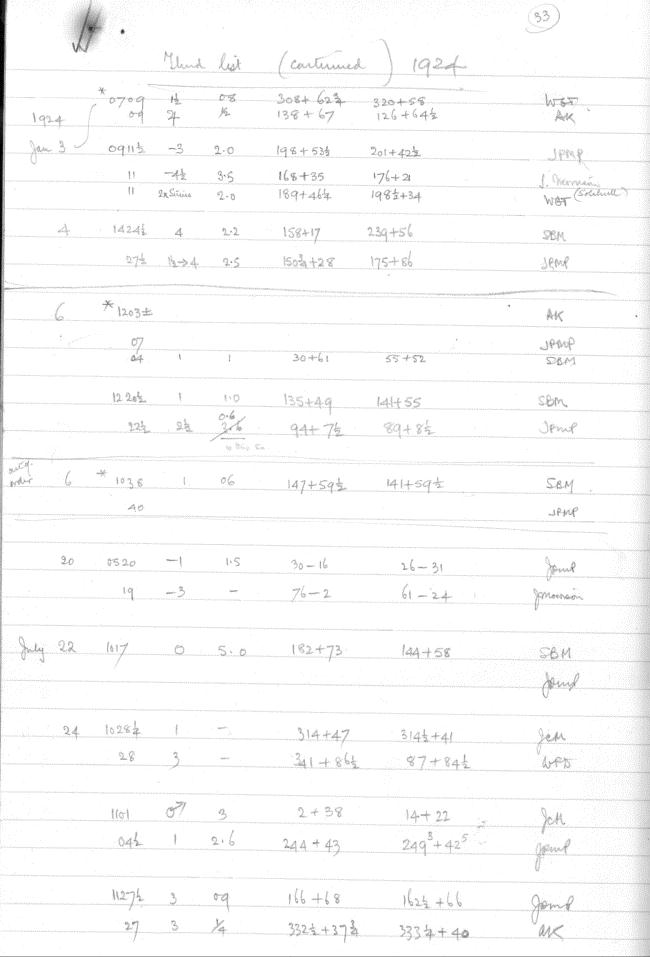 33
Third list (continued) 1924
* 0709 1½ 08 308+62¾ 320+58 WGT
1924 09 7 ½ 138+67 126+64½ AK
Jan 3 0911½ -3 2.0 198+53½ 201+42½ JPMP
11 -4½ 3.5 168+35 176+21 J.
11 2x Sirius 2.0 189+46¼ 198½+34 WGT (Solihull)
4 1424½ 4 2.2 158+17 239+56 SBM
27½ 1½→4 2.5 150¾+28 175+86 JPMP
6 * 1203± AK
07 JPMP
04 1 1 30+61 55+52 SBM
12 20½ 1 1.0 135+49 141+55 SBM
0.6
22½ 2½ 3.6 94+7½ 89+8½ JPMP
out of
order 6 * 1038 1 06 147+59½ 141+59½ SBM
40 JPMP
20 0520 -1 1.5 30-16 26-31 JPMP
19 -3 - 76-2 61-24
July 22 1017 0 5.0 182+73 144+58 SBM
JPMP
24 1028¼ 1 - 314+47 314½+41 JCM
28 3 - 341+86½ 87+84½ WFD
1101 ♂ 3 2+38 14+22 JCM
04½ 1 2.6 244+43 249³+42⁵ JPMP
1127½ 3 09 166+68 162½+66 JPMP
27 3 ¼ 332½+37¾ 333¼+40 AK